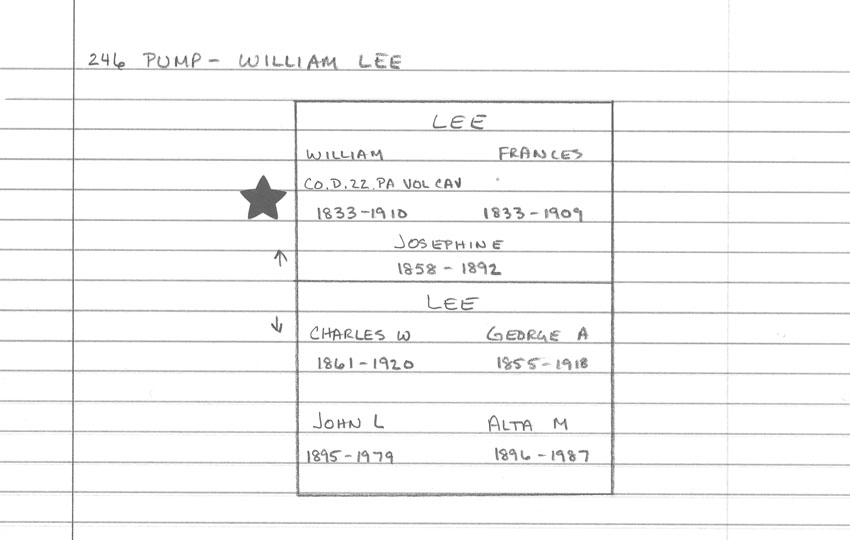 246 PUMP - WILLIAM LEE
LEE
WILLIAM FRANCES
CO. D. 22. PA VOL CAV
1833-1910 1833-1909
JOSEPHINE
1858 - 1892
LEE
CHARLES W GEORGE A
1861-1920 1855-1918
JOHN L ALTA M
1895-1979 1896-1987